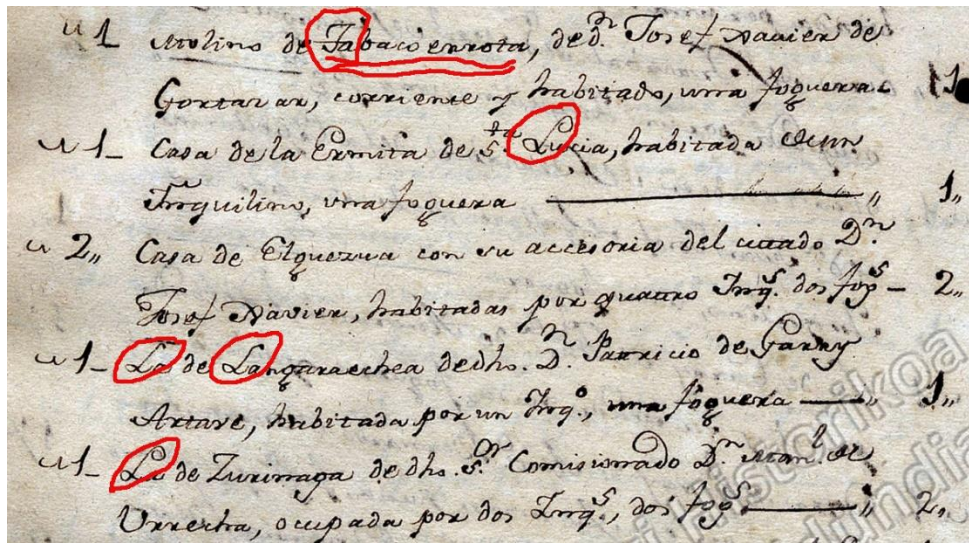 u 1 Molino de Jabacoerrota, de d.n Josef Xavier de
Gortazar, corriente y habitado, una foguera 1
u 1_ Casa de la Ermita de S.ta Lucia, habitada de un
Inquilino, una foguera " 1"
u 2" Casa de Elguezua con su accesoria del citado D.n
Josef Xavier, habitadas por quatro Inq.s dos fog.s — 2"
u 1_ La de Langaraechea de dho. D.n Patricio de Garay
Artave, habitada por un Inq.o, una foguera — " 1"
u 1_ La de Zurinaga de dho. S.or Comisionado D.n Man.l de
Urrecha, ocupada por dos Inq.s, dos fog.s " 2"